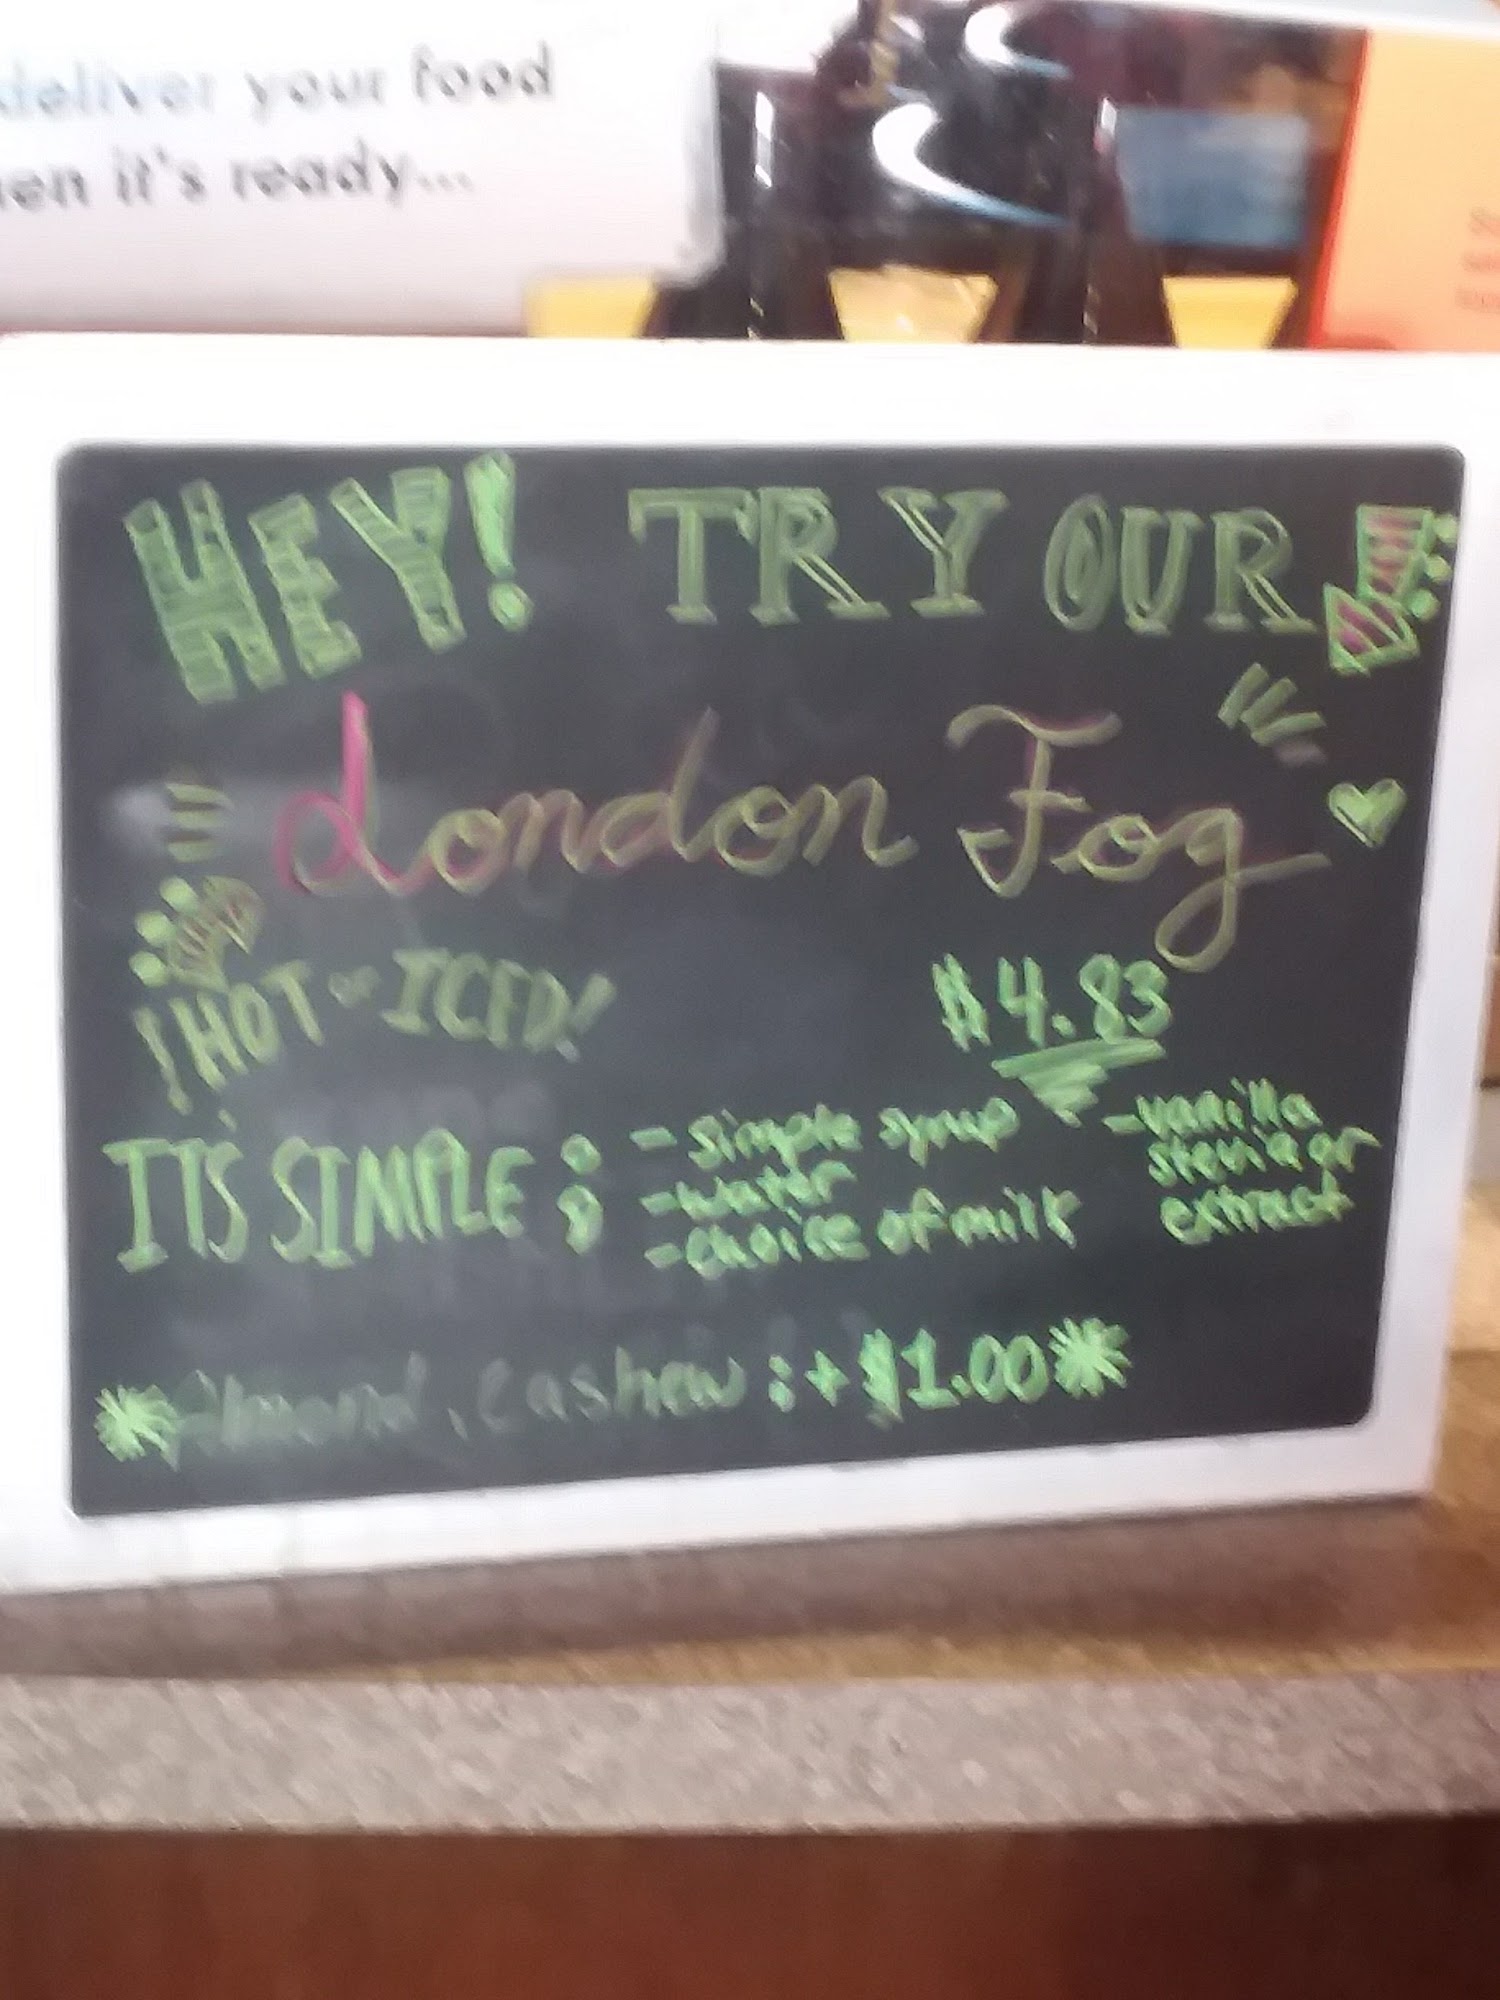 deliver your food
en it's ready...
HEY! TRY OUR !
London Fog
! HOT or ICED!
$4.83
IT'S SIMPLE :
- simple syrup
- water
- choice of milk
- vanilla
stevia or
extract
*Almond, Cashew : + $1.00*